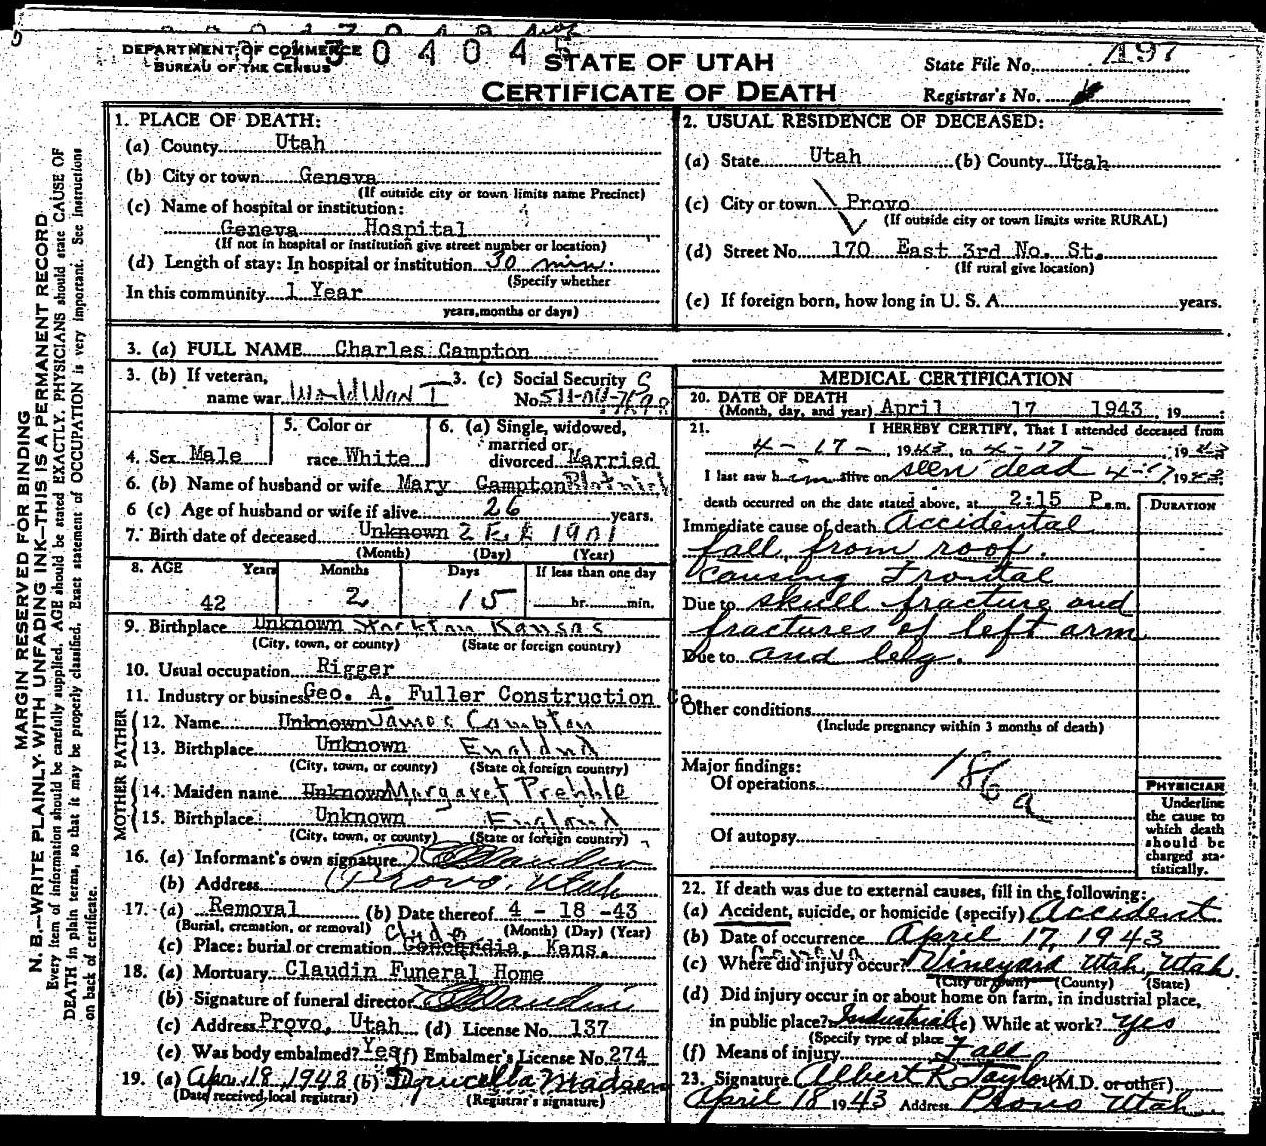 DEPARTMENT OF COMMERCE
BUREAU OF THE CENSUS
STATE OF UTAH
CERTIFICATE OF DEATH
State File No. 197
Registrar's No.
MARGIN RESERVED FOR BINDING
N. B.—WRITE PLAINLY WITH UNFADING INK—THIS IS A PERMANENT RECORD
Every item of information should be carefully supplied. AGE should be stated EXACTLY. PHYSICIANS should state CAUSE OF
DEATH in plain terms, so that it may be properly classified. Exact statement of OCCUPATION is very important. See instructions
on back of certificate.
1. PLACE OF DEATH:
(a) County Utah
(b) City or town Geneva
(If outside city or town limits name Precinct)
(c) Name of hospital or institution:
Geneva Hospital
(If not in hospital or institution give street number or location)
(d) Length of stay: In hospital or institution 30 min.
(Specify whether
In this community 1 Year
years, months or days)
2. USUAL RESIDENCE OF DECEASED:
(a) State Utah (b) County Utah
(c) City or town Provo
(If outside city or town limits write RURAL)
(d) Street No. 170 East 3rd No. St.
(If rural give location)
(e) If foreign born, how long in U. S. A. years.
3. (a) FULL NAME Charles Campton
3. (b) If veteran,
name war World War I
3. (c) Social Security
No.
4. Sex Male
5. Color or
race White
6. (a) Single, widowed,
married or
divorced Married
6. (b) Name of husband or wife Mary Campton
6 (c) Age of husband or wife if alive 26 years.
7. Birth date of deceased Unknown 2 1901
(Month) (Day) (Year)
8. AGE Years Months Days If less than one day
42 2 15 hr. min.
9. Birthplace Unknown Stockton Kansas
(City, town, or county) (State or foreign country)
10. Usual occupation Rigger
11. Industry or business Geo. A. Fuller Construction Co
FATHER
12. Name Unknown James Campton
13. Birthplace Unknown England
(City, town, or county) (State or foreign country)
MOTHER
14. Maiden name Unknown Margaret Prehble
15. Birthplace Unknown England
(City, town, or county) (State or foreign country)
16. (a) Informant's own signature
(b) Address Provo, Utah
17. (a) Removal (b) Date thereof 4 - 18 -43
(Burial, cremation, or removal) (Month) (Day) (Year)
(c) Place: burial or cremation Clyde Concordia, Kans.
18. (a) Mortuary Claudin Funeral Home
(b) Signature of funeral director
(c) Address Provo, Utah (d) License No. 137
(e) Was body embalmed? Yes (f) Embalmer's License No. 274
19. (a) Apr. 18, 1943 (b) Drucella Madsen
(Date received local registrar) (Registrar's signature)
MEDICAL CERTIFICATION
20. DATE OF DEATH
(Month, day, and year) April 17 1943, 19
21. I HEREBY CERTIFY, That I attended deceased from
4 - 17 - , 1943, to 4 - 17 - , 1943
I last saw him alive on seen dead 4-17 1943
death occurred on the date stated above, at 2:15 P.m.
DURATION
Immediate cause of death Accidental
fall from roof.
causing Frontal
Due to skull fracture and
fractures of left arm
Due to and leg.
Other conditions
(Include pregnancy within 3 months of death)
Major findings:
Of operations
186 a
Of autopsy
PHYSICIAN
Underline
the cause to
which death
should be
charged sta-
tistically.
22. If death was due to external causes, fill in the following:
(a) Accident, suicide, or homicide (specify) Accident
(b) Date of occurrence April 17, 1943
Geneva
(c) Where did injury occur? Vineyard Utah, Utah.
(City or town) (County) (State)
(d) Did injury occur in or about home on farm, in industrial place,
in public place? Industrial (e) While at work? Yes
(Specify type of place
(f) Means of injury Fall
23. Signature Albert R Taylor (M.D. or other)
April 18 1943 Address Provo Utah